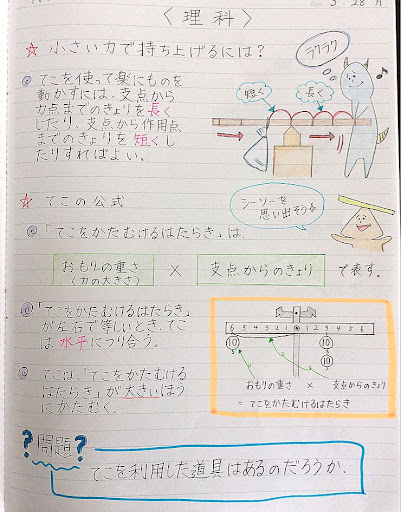 3.28 月
〈理科〉
☆ 小さい力で持ち上げるには?
ラクラク
◎ てこを使って楽にものを
動かすには、支点から
力点までのきょりを長く
したり、支点から作用点
までのきょりを短くし
たりすればよい。
短く
長く
☆ てこの公式
シーソーを
思い出そう
◎「てこをかたむけるはたらき」は、
おもりの重さ
(力の大きさ)
×
支点からのきょり
で表す。
◎「てこをかたむけるはたらき」
が左右で等しいとき、てこ
は水平につり合う。
◎ てこは「てこをかたむける
はたらき」が大きいほう
にかたむく。
6 5 4 3 2 1 1 2 3 4 5 6
10 10
10
おもりの重さ × 支点からのきょり
= てこをかたむけるはたらき
?問題?
てこを利用した道具はあるのだろうか.